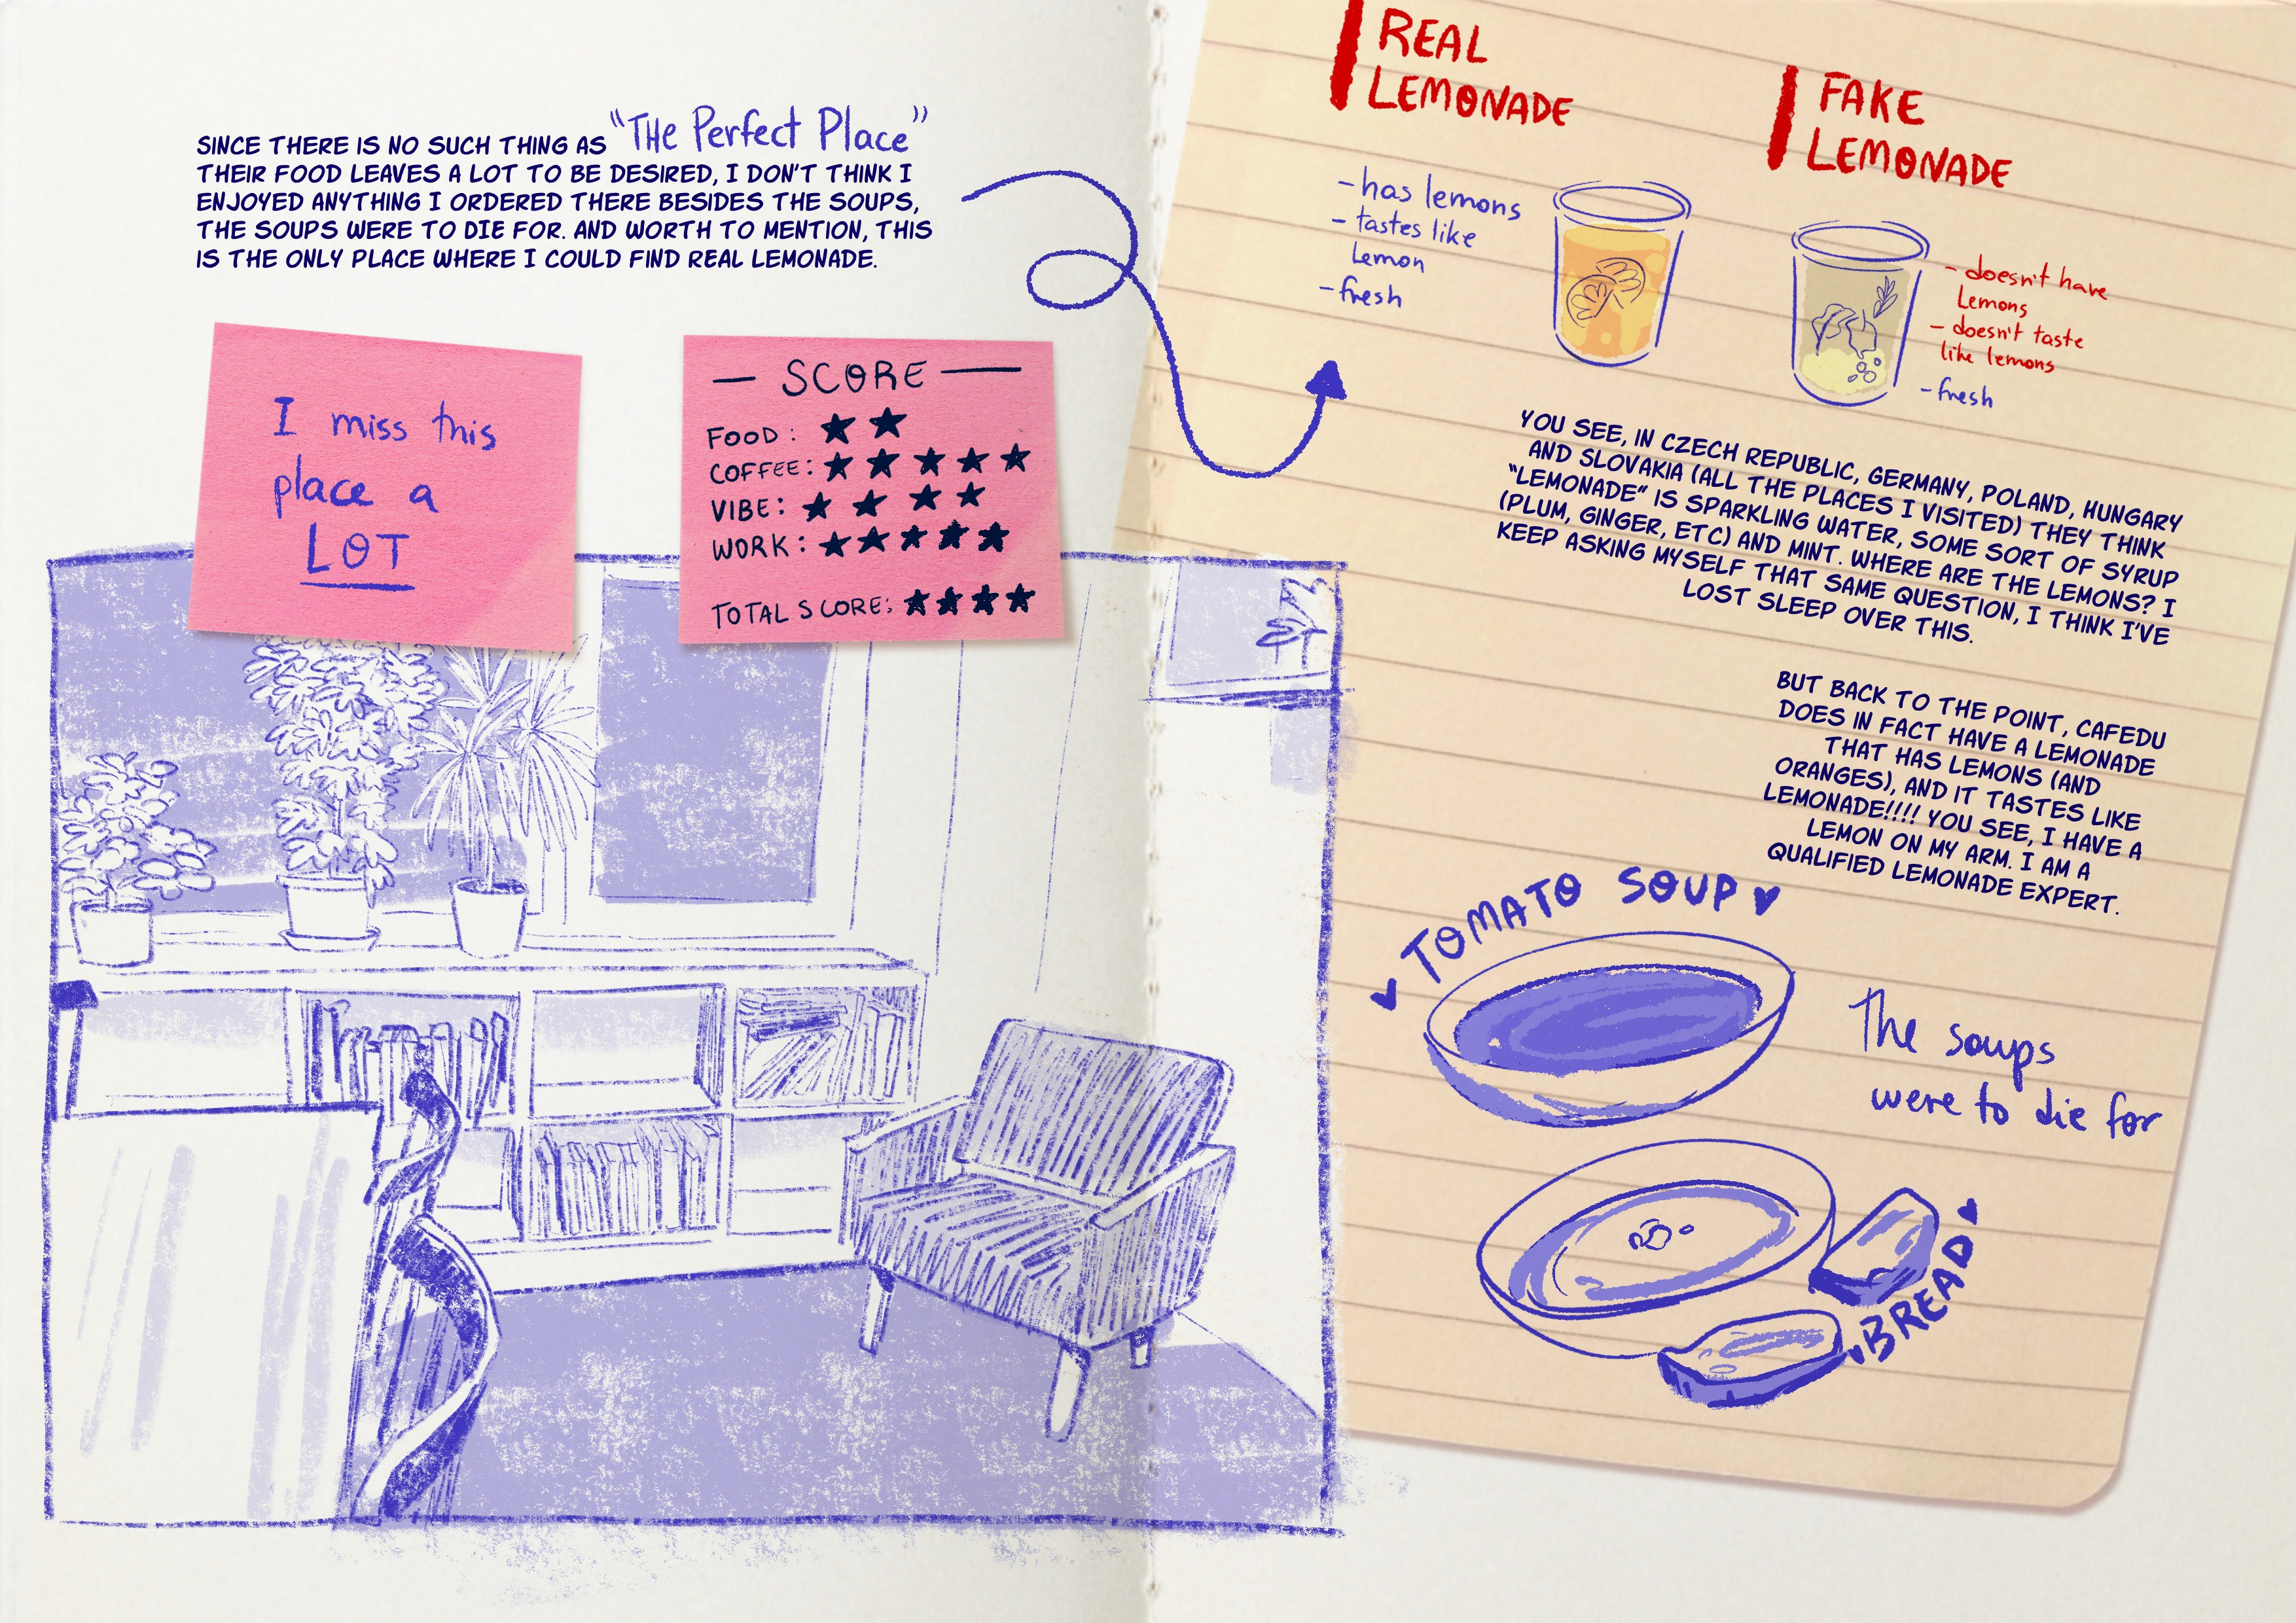 SINCE THERE IS NO SUCH THING AS "THE Perfect Place"
THEIR FOOD LEAVES A LOT TO BE DESIRED, I DON'T THINK I
ENJOYED ANYTHING I ORDERED THERE BESIDES THE SOUPS,
THE SOUPS WERE TO DIE FOR. AND WORTH TO MENTION, THIS
IS THE ONLY PLACE WHERE I COULD FIND REAL LEMONADE.
I miss this
place a
LOT
— SCORE —
FOOD: ★ ★
COFFEE: ★ ★ ★ ★ ★
VIBE: ★ ★ ★ ★
WORK: ★ ★ ★ ★ ★
TOTAL SCORE: ★ ★ ★ ★
REAL
LEMONADE
- has lemons
- tastes like
Lemon
- fresh
FAKE
LEMONADE
- doesn't have
Lemons
- doesn't taste
like lemons
- fresh
YOU SEE, IN CZECH REPUBLIC, GERMANY, POLAND, HUNGARY
AND SLOVAKIA (ALL THE PLACES I VISITED) THEY THINK
"LEMONADE" IS SPARKLING WATER, SOME SORT OF SYRUP
(PLUM, GINGER, ETC) AND MINT. WHERE ARE THE LEMONS? I
KEEP ASKING MYSELF THAT SAME QUESTION, I THINK I'VE
LOST SLEEP OVER THIS.
BUT BACK TO THE POINT, CAFEDU
DOES IN FACT HAVE A LEMONADE
THAT HAS LEMONS (AND
ORANGES), AND IT TASTES LIKE
LEMONADE!!!! YOU SEE, I HAVE A
LEMON ON MY ARM. I AM A
QUALIFIED LEMONADE EXPERT.
♥ TOMATO SOUP ♥
The soups
were to die for
♥ BREAD ♥